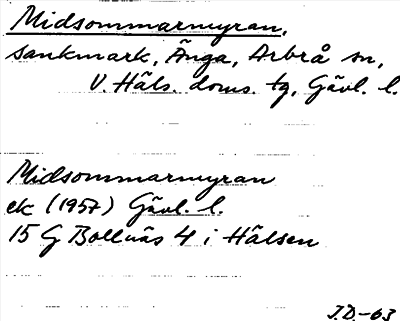 Midsommarmyran,
sankmark, Änga, Arbrå sn,
V. Häls. doms. tg, Gävl. l.
Midsommarmyran
ek (1957) Gävl. l.
15 G Bollnäs 4 i Hälsen
J.D.-63